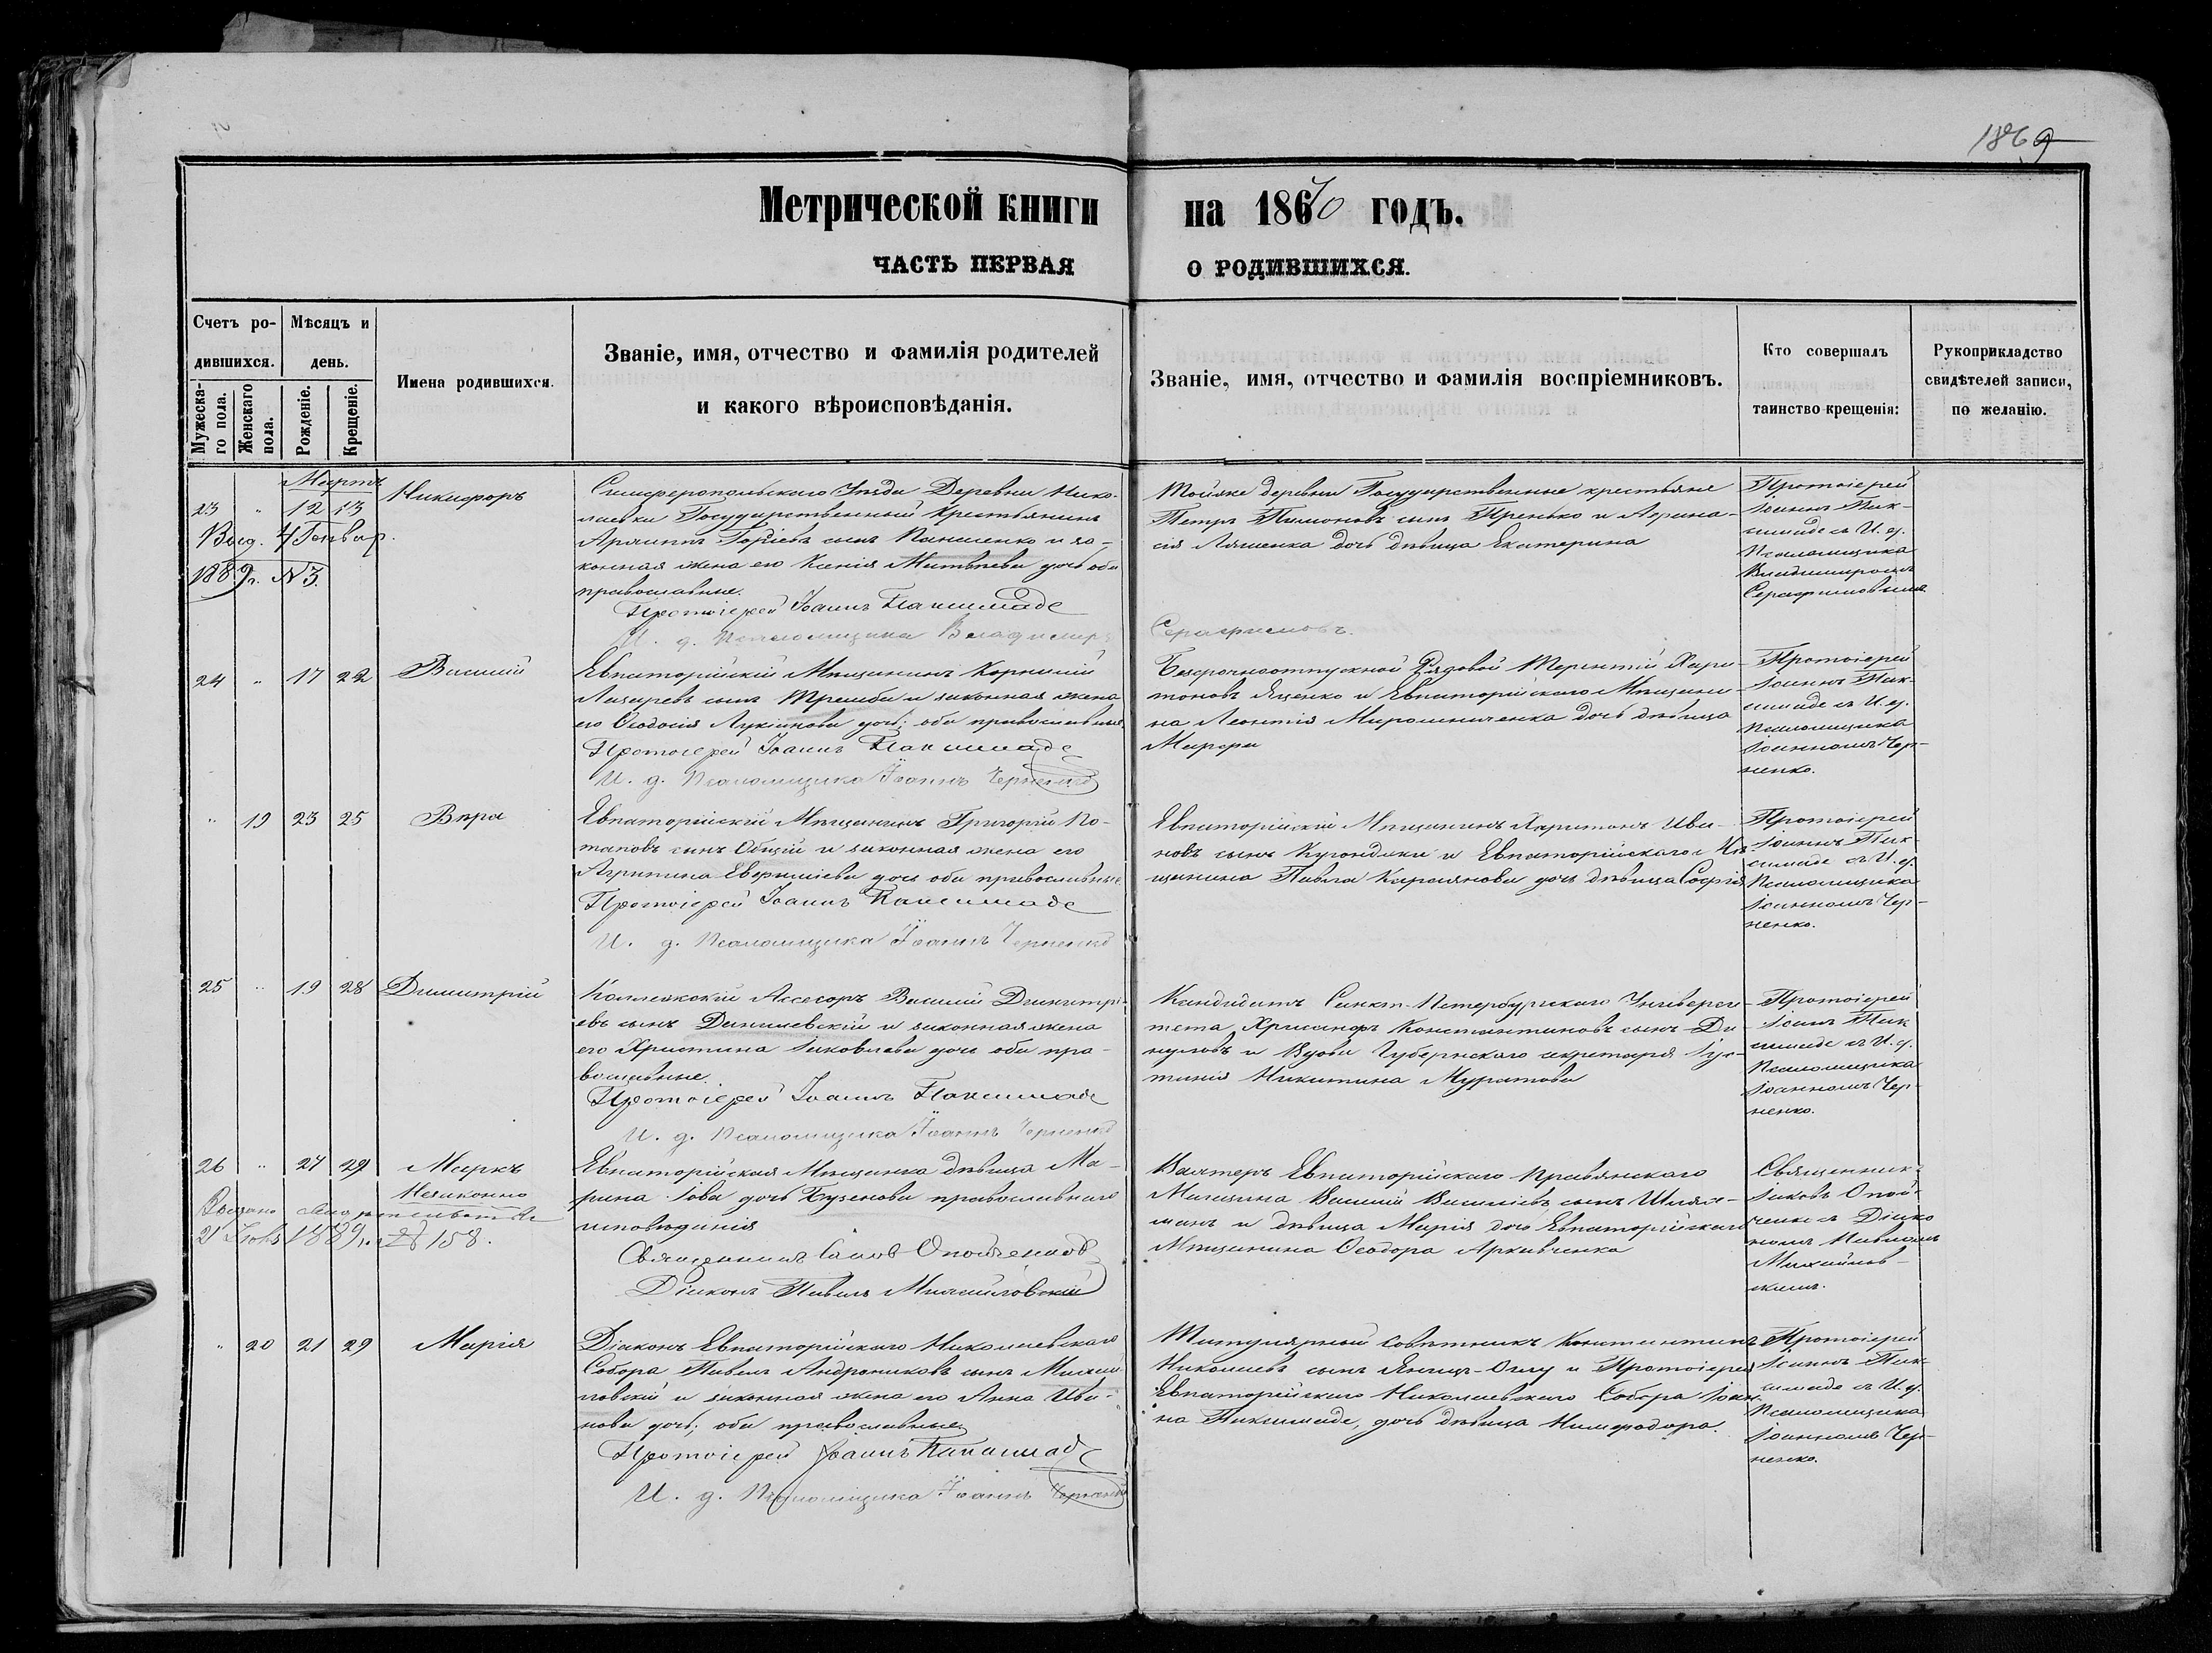 1869
Метрической книги на 1870 годъ.
ЧАСТЬ ПЕРВАЯ О РОДИВШИХСЯ.
Счетъ ро-
дившихся.
Мужеска-
го пола.
Женскаго
пола.
Мѣсяцъ и
день.
Рожденіе.
Крещеніе.
Имена родившихся.
Званіе, имя, отчество и фамилія родителей
и какого вѣроисповѣданія.
Званіе, имя, отчество и фамилія воспріемниковъ.
Кто совершалъ
таинство крещенія:
Рукоприкладство
свидѣтелей записи,
по желанію.
Мартъ
23 " 12 13 Никифоръ
Выд. 4 Генвар.
1889 г. N 3.
Симферопольскаго Уѣзда Деревни Нико-
лаевки Государственный Крестьянинъ
сынъ и за-
конная жена его Ксенія Матвѣева дочь оба
православные.
Протоіерей Іоаннъ Паксимаде
И. д. Псаломщика Владимиръ Серафимовъ.
Тойже деревни Государственные крестьяне
Петръ сынъ и
дочь дѣвица Екатерина
Протоіерей
Іоаннъ Пак-
симаде съ И. д.
Псаломщика
Владимиромъ
Серафимовымъ
24 " 17 22 Василій
Евпаторійскій Мѣщанинъ Корнилій
Лазаревъ сынъ и законная жена
его Ѳеодосія Лукіанова дочь; оба православные
Протоіерей Іоаннъ Паксимаде
И. д. Псаломщика Іоаннъ Черненко
Безсрочноотпускной Рядовой Терентій Хари-
тоновъ Яценко и Евпаторійскаго Мѣщани-
на Леонтія Мирошниченка дочь дѣвица
Марѳа
Протоіерей
Іоаннъ Пак-
симаде съ И. д.
Псаломщика
Іоанномъ Чер-
ненко.
" 19 23 25 Вѣра
Евпаторійскій Мѣщанинъ Григорій По-
таповъ сынъ и законная жена его
Агрипина дочь оба православные
Протоіерей Іоаннъ Паксимаде
И. д. Псаломщика Іоаннъ Черненко
Евпаторійскій Мѣщанинъ Харитонъ Ива-
новъ сынъ и Евпаторійскаго Мѣ-
щанина Павла дочь дѣвица Софія
Протоіерей
Іоаннъ Пак-
симаде съ И. д.
Псаломщика
Іоанномъ Чер-
ненко.
25 " 19 28 Димитрій
Коллежскій Ассесоръ Василій Димитрі-
евъ сынъ Данилевскій и законная жена
его Христина Іаковлева дочь оба пра-
вославные.
Протоіерей Іоаннъ Паксимаде
И. д. Псаломщика Іоаннъ Черненко
Кандидатъ Санкт-Петербургскаго Универси-
тета Хрисанфъ Константиновъ сынъ
и Вдова Губернскаго секретаря Іус-
тинія Никитина Муратова
Протоіерей
Іоаннъ Пак
симаде съ И. д.
Псаломщика
Іоанномъ Чер-
ненко.
26 " 24 29 Маркъ
Незаконно
Выдано свидѣтельство
21 1889 г. № 158.
Евпаторійская Мѣщанка дѣвица Ма-
рина Іова дочь православнаго
исповѣданія
Священникъ Іаковъ
Діаконъ Павелъ Михайловскій
Вахтеръ Евпаторійскаго Провіянскаго
Магазина Василій Василіевъ сынъ
и дѣвица Марія дочь Евпаторійскаго
Мѣщанина Ѳеодора
Священникъ
Іаковъ
съ Діако
номъ Павломъ
Михайлов-
скимъ.
" 20 21 29 Марія
Діаконъ Евпаторійскаго Николаевскаго
Собора Павелъ Андрониковъ сынъ Михай-
ловскій и законная жена его Анна Ива-
нова дочь; оба православные
Протоіерей Іоаннъ Паксимаде
И. д. Псаломщика Іоаннъ Черненко
Титулярный Совѣтникъ Константинъ
Николаевъ сынъ и Протоіерея
Евпаторійскаго Николаевскаго Собора Іоан-
на Паксимаде, дочь дѣвица Нимфодора.
Протоіерей
Іоаннъ Пак-
симаде съ И. д.
Псаломщика
Іоанномъ Чер-
ненко.